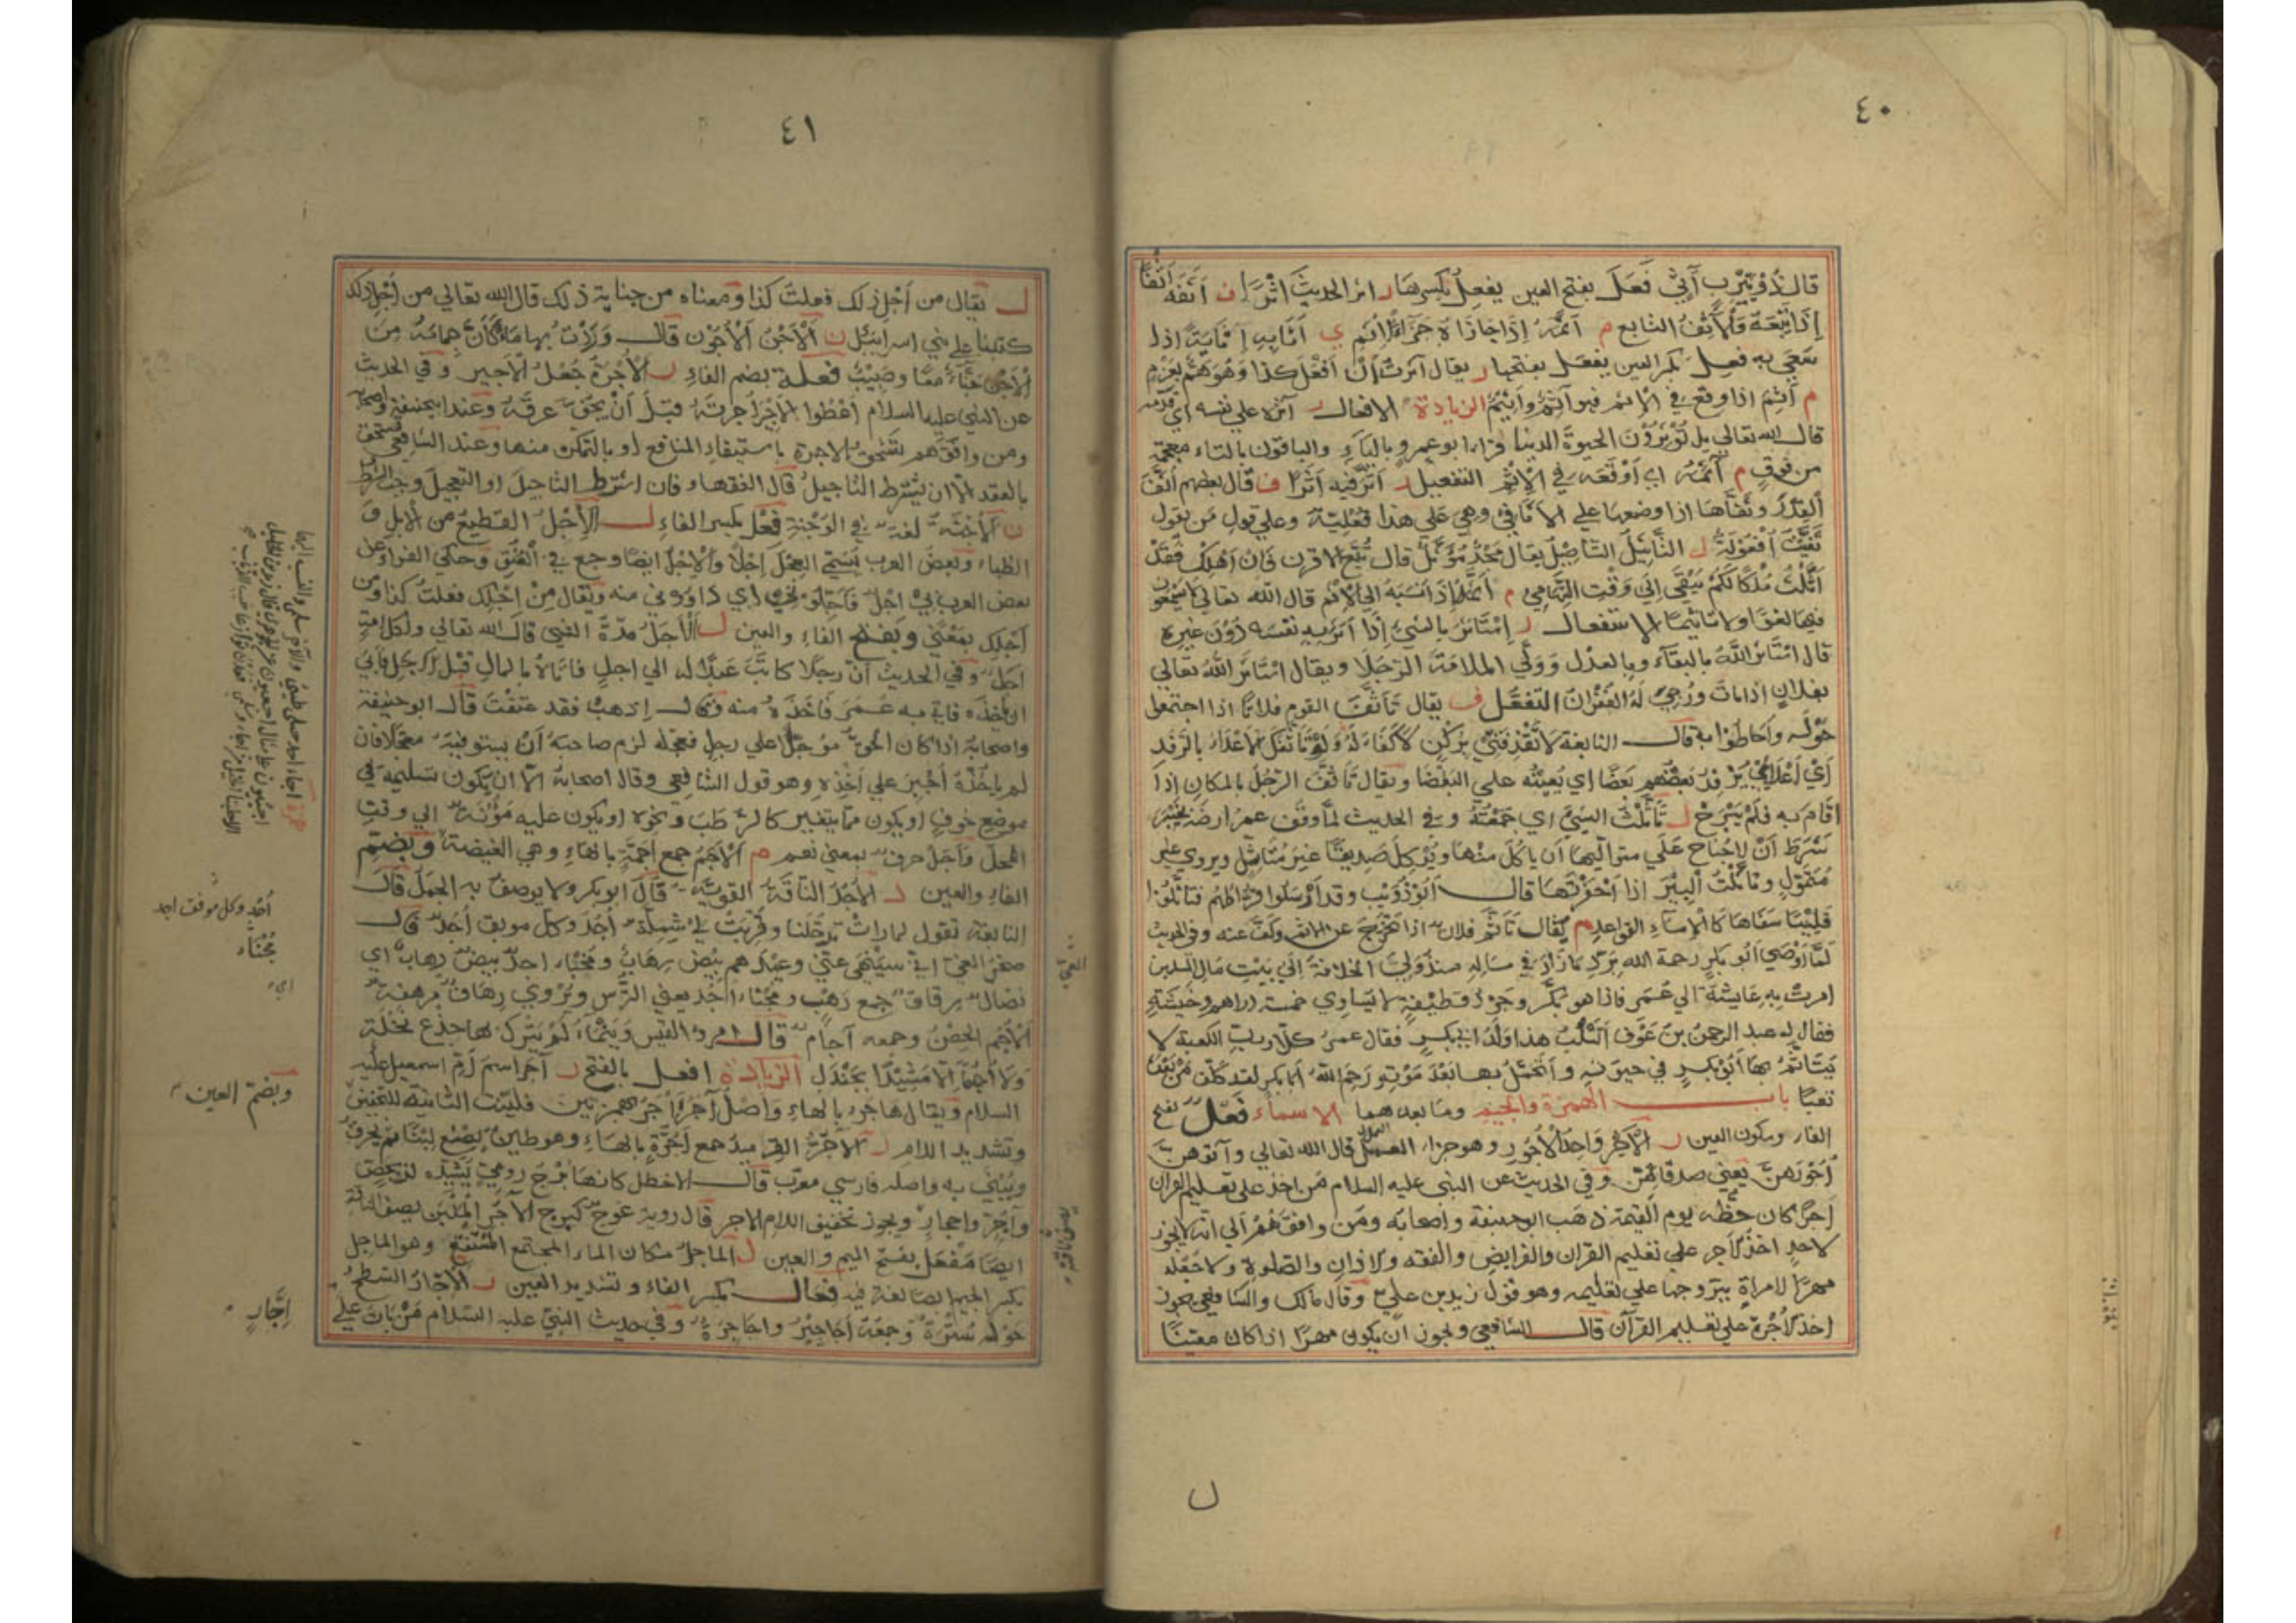 ٤٠
قال ذو يثرب آني فَعَلَ بفتح العين يفعِل بكسرها ر اثر الحديث اثرًا ف اثفه اثفًا
إذا تبعه والآثف التابع م آثمه إذا جازاه جزاء الإثم ي أثا به إثاية إذا
سعى به فعِل بكسر العين يفعَل بفتحها ر يقال آثرت أن أفعل كذا وهو هم بعزم
م أثم اذا وقع في الاثم فهو آثم وأثيم الزيادة الافعال ر آثره على نفسه أي قدمه
قال الله تعالى بل تؤثرون الحيوة الدنيا قرا ابو عمرو بالياء والباقون بالتاء معجمة
من فوق م آثمه اي أوقعه في الإثم التفعيل ر أثر فيه أثرًا ف قال بعضهم أثف
القدر وثفّاها اذا وضعها على الاثافي وهي على هذا فعلية وعلى قول من يقول
ثفيت أفعولة ل التأثيل التأصيل يقال مجد مؤثل قال تبع الاقرن فان اهلك فقد
أثّلت ملكا لكم يبقى إلى وقت التهامي م أثمه إذا نسبه الى الإثم قال الله تعالى لا يسمعون
فيها لغوا ولا تأثيما الاستفعال ر استأثر بالشيء إذا آثر به نفسه دون غيره
قال استأثر الله بالبقاء وبالعدل وولى الملامة الرجلا ويقال استأثر الله تعالى
بفلان اذا مات ورجي له الغفران التفعّل ف يقال تأثف القوم فلانًا اذا اجتمعوا
حوله وأحاطوا به قال النابغة لا تقذفنّي بركن لا كفاء له ولو تأثفك الأعداء بالرفد
أي أعدائي يرفد بعضهم بعضًا اي يعينه على البغضا ويقال تأثف الرجل بالمكان إذا
اقام به فلم يبرح ل تأثّلت الشيء اي جمعته وفي الحديث لما وقف عمر ارضه بخيبر
شرط أن لا جناح على متواليها أن يأكل منها ويؤكل صديقًا غير متأثل ويروى غير
متمول وتأثلت البئر اذا احفرتها قال ابو ذؤيب وقد أرسلوا فراطهم فتأثلوا
قليبًا سفاها كالإماء القواعد م يقال تأثم فلان اذا تحرج عن الاثم وكف عنه وفي الحديث
لما أوصى أبو بكر رحمة الله برد ما زاد في ماله منذ ولي الخلافة إلى بيت مال المسلمين
امرت به عايشة الى عمر فاذا هو بكر وجرد قطيفة لا يساوي خمسة دراهم وحبشية
فقال له عبد الرحمن بن عوف أتسلب هذا ولد ابي بكر فقال عمر كلا ورب الكعبة لا
يتأثم بها أبو بكر في حيوته وأتحمل بها بعد موته رحم الله أبا بكر لقد كلف من بعده
تعبًا باب الهمزة والجيم وما بعدهما الاسماء فَعْل بفتح
الفاء وسكون العين ر الأجر واحد الأجور وهو جزاء العمل قال الله تعالى وآتوهن
أجورهن يعني صدقاتهن وفي الحديث عن النبي عليه السلام من اخذ على تعليم القران
أجرًا كان حظه يوم القيمة ذهب ابو حنيفة واصحابه ومن وافقهم الى انه لا يجوز
لاحد اخذ الاجر على تعليم القران والفرايض والفقه ولا اذان والصلوة ولا جعله
مهرًا لامراة يتزوجها على تعليمه وهو قول زيد بن علي وقال مالك والشافعي يجوز
اخذ الاجرة على تعليم القرآن قال الشافعي ويجوز أن يكون مهرًا اذا كان معينًا
ل
٤١
ل يقال من أجل ذلك فعلت كذا ومعناه من جناية ذلك قال الله تعالى من أجل ذلك
كتبنا على بني اسرائيل ن الأجن الأجون قال وردت بها ماء كأن جمامه من
الأجن حناء معًا وصبيب فُعْلة بضم الفاء ر الأجرة جعل الأجير وفي الحديث
عن النبي عليه السلام أعطوا الأجير أجرته قبل أن يجف عرقه وعند ابي حنيفة واصحابه
ومن وافقهم تستحق الاجرة باستيفاء المنافع او بالتمكن منها وعند الشافعي تستحق
بالعقد الا ان يشترط التأجيل قال الفقهاء فان اشترط التاجيل او التعجيل وجب الشرط
ن الأجنة لغة في الوجنة فِعْل بكسر الفاء ل الإجل القطيع من الإبل و
الظباء وبعض العرب يسمي العجل إجلا والإجل ايضا وجع في العنق وحكى الفراء عن
بعض العرب بي اجل فأجّلوني اي داووني منه ويقال من إجلك فعلت كذا ومن
أجلك بمعنى وبفتح الفاء والعين ل الأجل مدة الشيء قال الله تعالى ولكل امة
اجل وفي الحديث أن رجلا كاتب عبدًا له الى اجل فاتاه بالمال قبل الاجل فأبى
ان يأخذه فاتى به عمر فأخذه منه وقال إذهب فقد عتقت قال ابو حنيفة
واصحابه اذا كان الحق مؤجلا على رجل فعجله لزم صاحبه أن يستوفيه معجلا فان
لم يأخذه أجبر على أخذه وهو قول الشافعي وقال اصحابه الا ان يكون تسليمه في
موضع خوف او يكون مما يتغير كالرطب ونحوه او يكون عليه مؤنة الى وقت
المحل وأجل حرف بمعنى نعم م الأجم جمع أجمة بالهاء وهي الغيضة وبضم
الفاء والعين د الأجد الناقة القوية قال ابو بكر ولا يوصف به الجمل قال
النابغة تقول لما رأت ترحلنا وقربت لي شملة أجد وكل موبق أجد قال
صخر الغي اني سينهى عني وعيدهم بيض رهاب ومجناء اجد بيض رهاب اي
نصال رقاق جمع رهب ومجناء اجد يعني الترس ويروى رهاف مرهفة
الأجم الحصن وجمعه آجام قال امرؤ القيس وتيماء لم يترك بها جذع نخلة
ولا أجمًا الا مشيدا بجندل الزيادة افعل بالفتح ر آجر اسم أم اسمعيل عليه
السلام ويقال هاجر بالهاء وأصل آجر أأجر بهمزتين فلينت الثانية للتخفيف
وتشديد اللام ر الآجر القراميد جمع آجرة بالهاء وهو طين يصنع لبنا ثم يحرق
ويبنى به واصله فارسي معرب قال الاخطل كانها برج رومي يشيده لز بجص
وآجر واحجار ويجوز تخفيف اللام الاجر قال روبة عوج كبرج الآجر الملبن يصف الناقة
ايضا مفعل بفتح الميم والعين ل الماجل مكان الماء المجتمع المستنقع وهو الماجل
بكسر الجيم ايضا لغة فيه فعال بكسر الفاء وتشديد العين ر الإجار السطح
حوله سترة وجمعه أجاجير واجاجرة وفي حديث النبي عليه السلام من بات على
أجد وكل موفق اجد
مجناء
الغي
وبضم العين
إجّار